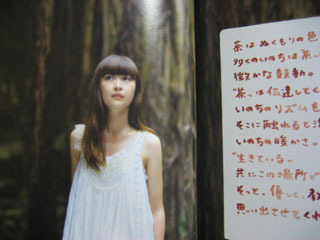 茶は ぬくもりの色
多くのいのちは茶
微かな鼓動。
"茶"は伝達してく
いのちのリズムを
そこに触れると
いのちの暖かさ。
"生きている。
共にこの場所で
そっと、優しく、
思い出させてくれ